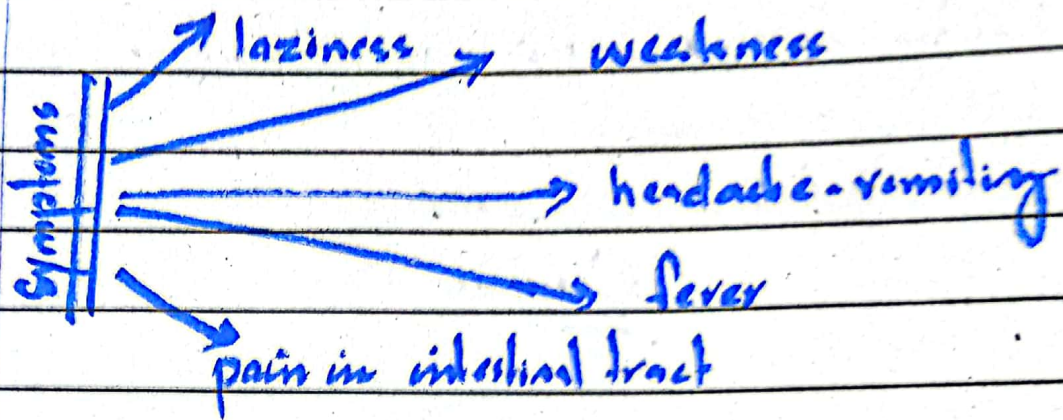 Symptoms
laziness
weakness
headache - vomiting
fever
pain in intestinal tract